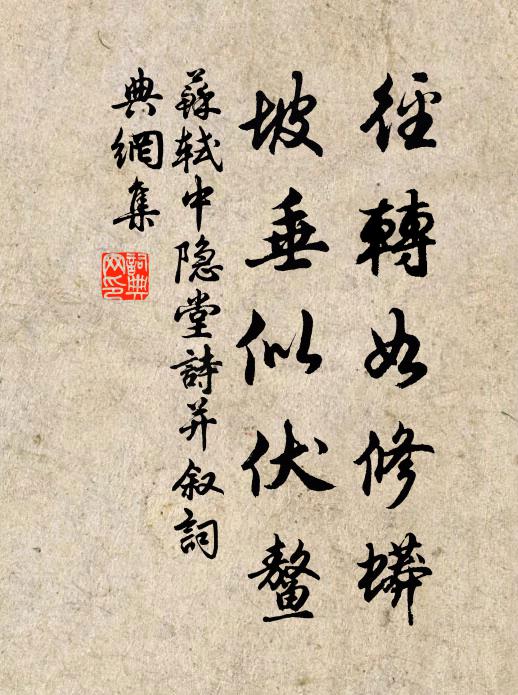 徑轉如修蟒
坡垂似伏鰲
蘇軾中隐堂詩并叙詞
典網集
詞典网印